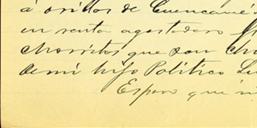 á orillas de Cuencamé
en venta agostadero
Chorritos que son
de mi hijo Político Lu
Espero que